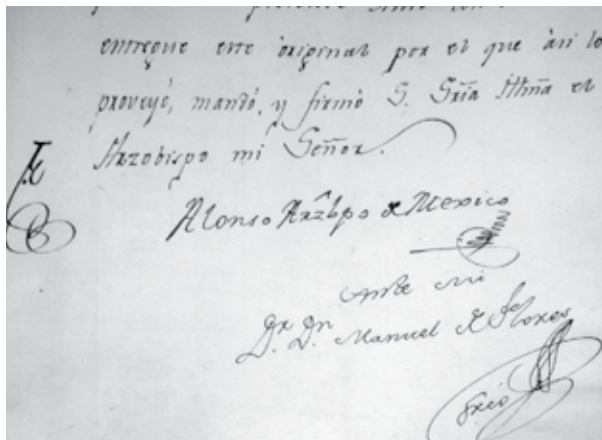 entregue este original por el que àsi lo
proveyó, mandó, y firmó S. Sria Illma el
Arzobispo mi Señor.
Alonso Arzbpo de Mexico
ante mi
Dr. Dn. Manuel de Flores
Srio